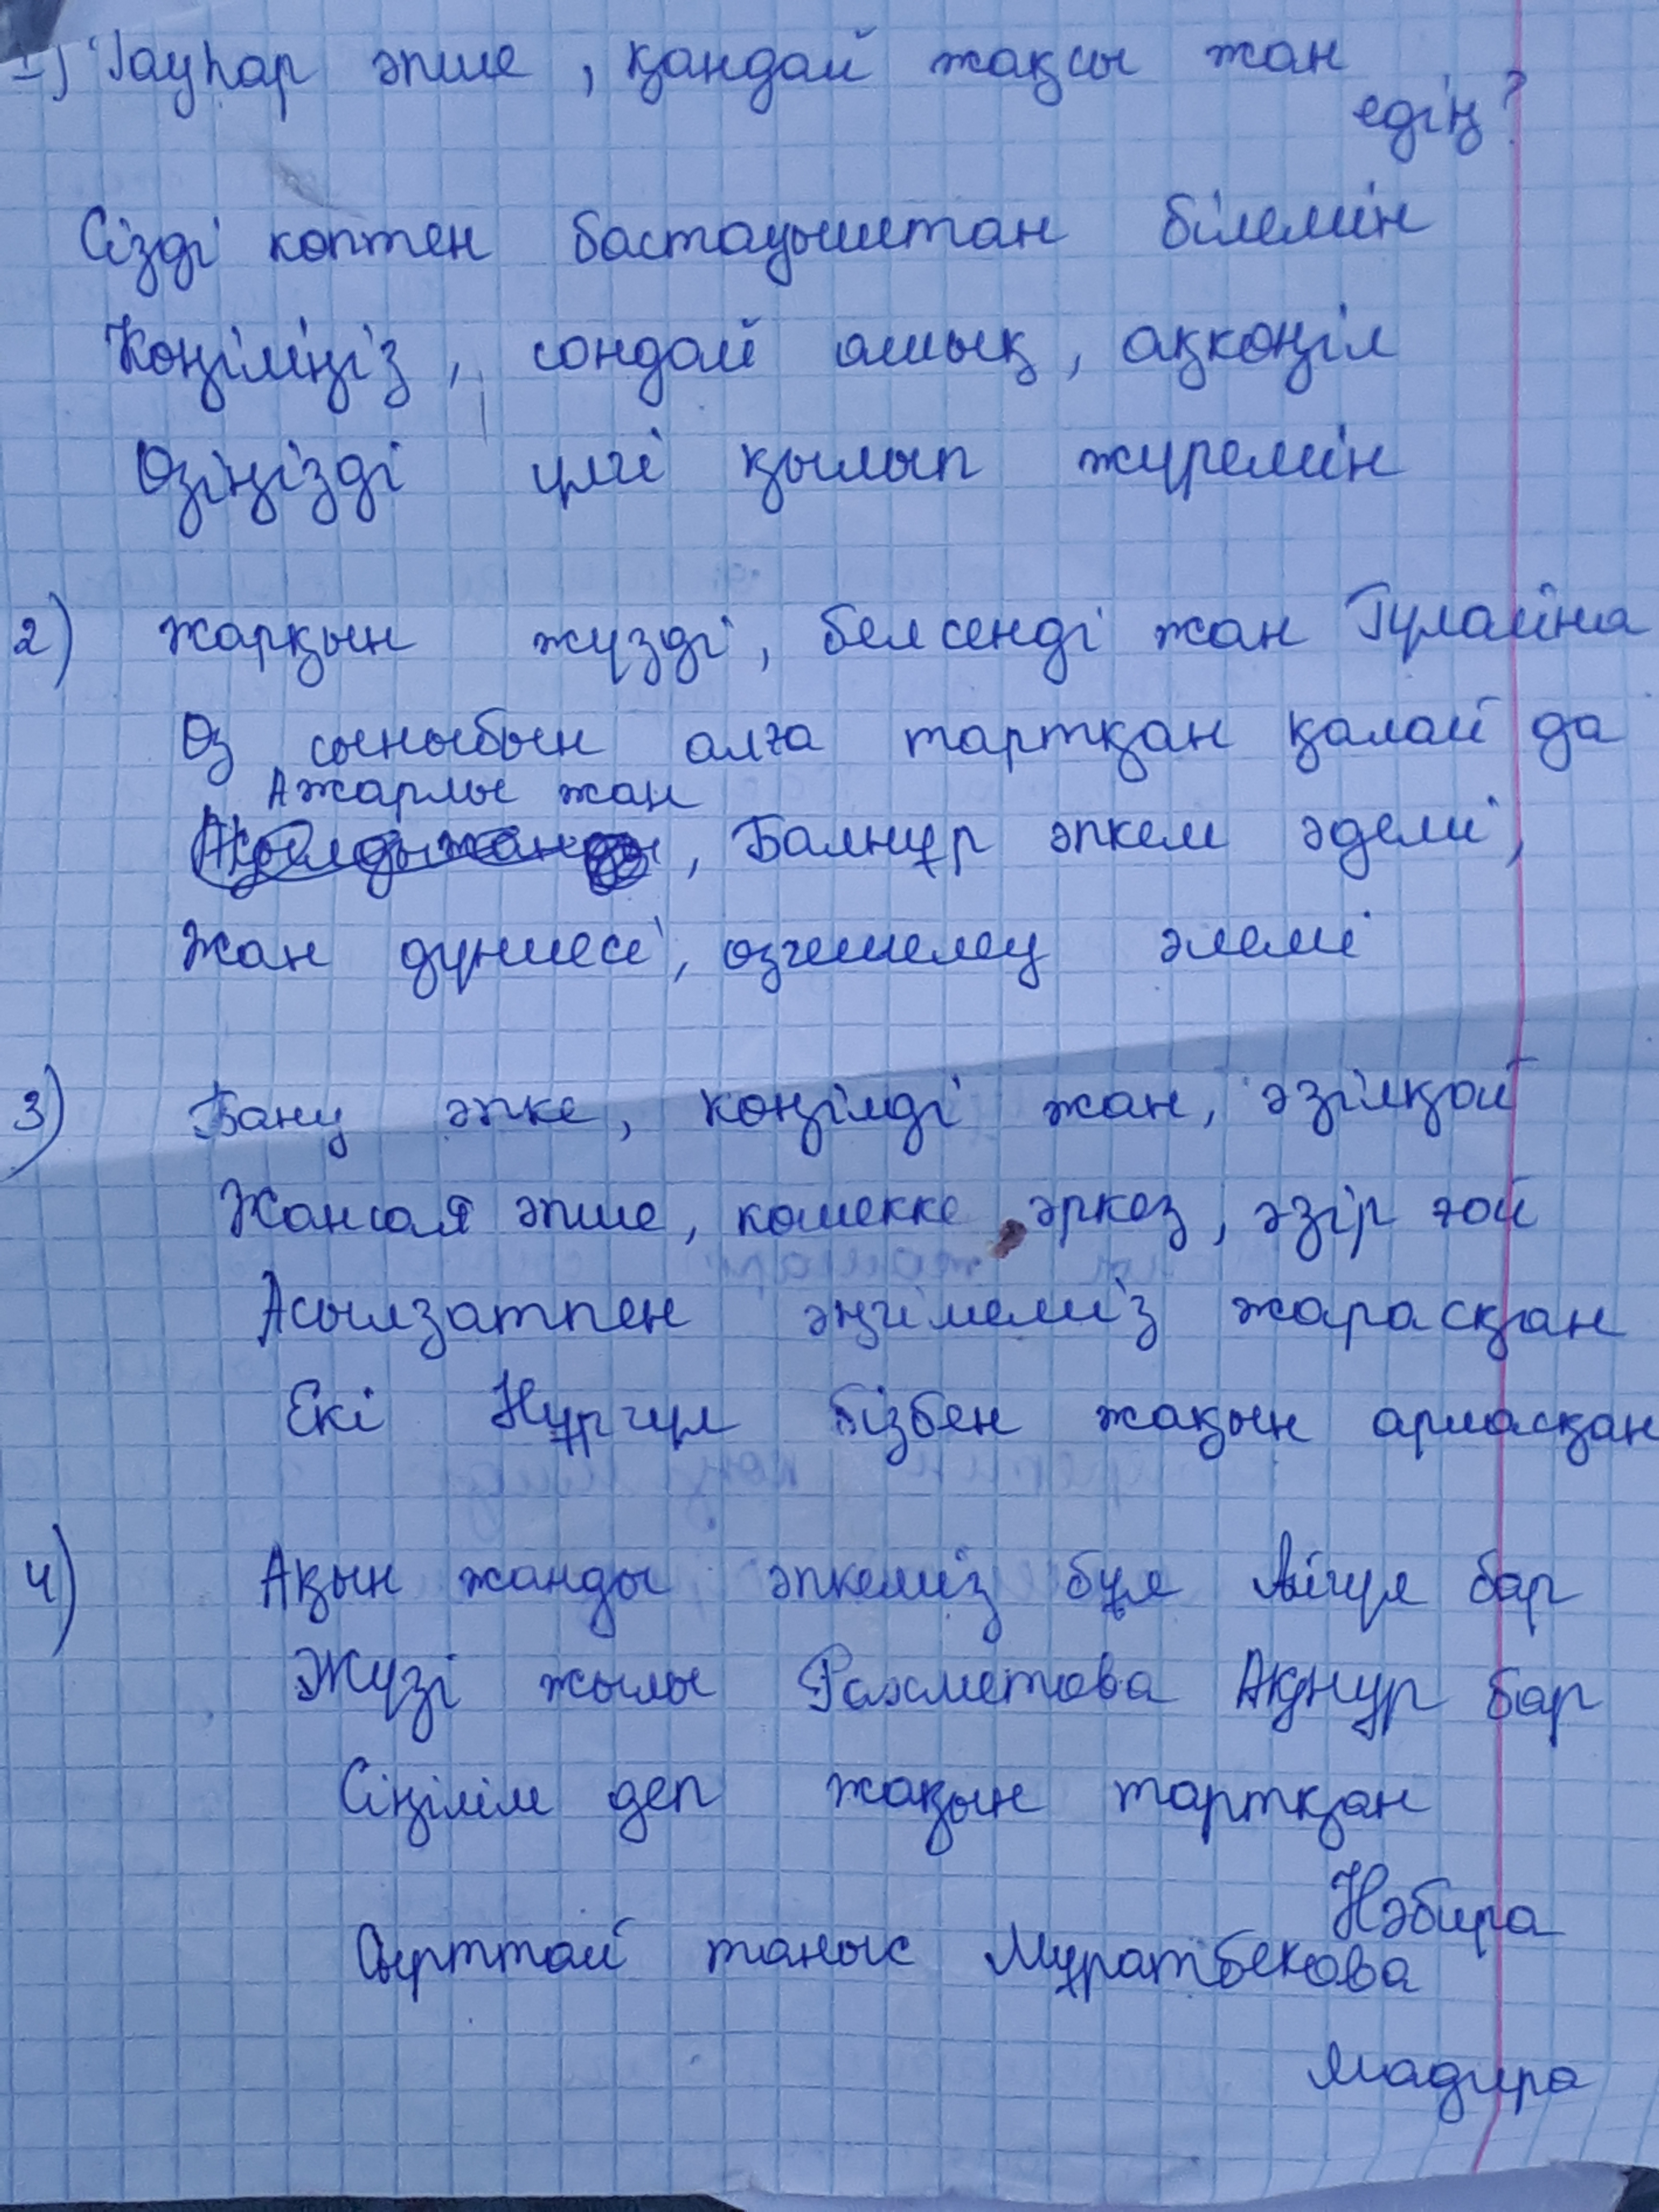 1) Гауһар әпше, қандай жақсы жан
едің?
Сізді көптен бастауыштан білемін
Көңіліңіз, сондай ашық, ақкөңіл
Өзіңізді үлгі қылып жүремін
2) Жарқын жүзді, белсенді жан Гүлайна
Өз сыныбын алға тартқан қалай да
Ажарлы жан
, Балнұр әпкем әдемі,
Жан дүниесі, өзгешелеу әлемі
3) Бану әпке, көңілді жан, әзілқой
Жансая әпше, көмекке әркез, әзір ғой
Асылзатпен әңгімеміз жарасқан
Екі Нұргүл бізбен жақын араласқан
4) Ақын жанды әпкеміз бұл Айгүл бар
Жүзі жылы Рахметова Ақнұр бар
Сіңілім деп жақын тартқан
Нәбира
Сырттай таныс Мұратбекова
Мадира